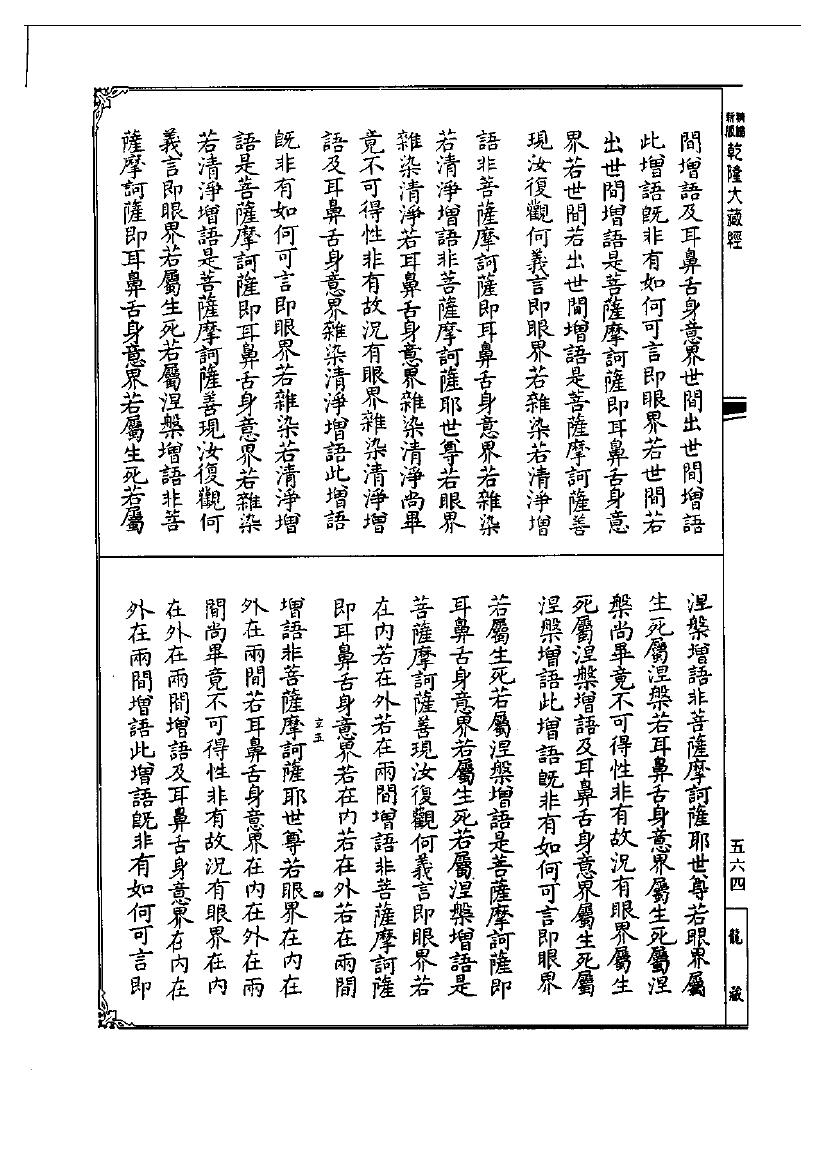 新編縮版
乾隆大藏經
間增語及耳鼻舌身意界世間出世間增語
此增語既非有如何可言即眼界若世間若
出世間增語是菩薩摩訶薩即耳鼻舌身意
界若世間若出世間增語是菩薩摩訶薩善
現汝復觀何義言即眼界若雜染若清淨增
語非菩薩摩訶薩即耳鼻舌身意界若雜染
若清淨增語非菩薩摩訶薩耶世尊若眼界
雜染清淨若耳鼻舌身意界雜染清淨尚畢
竟不可得性非有故況有眼界雜染清淨增
語及耳鼻舌身意界雜染清淨增語此增語
既非有如何可言即眼界若雜染若清淨增
語是菩薩摩訶薩即耳鼻舌身意界若雜染
若清淨增語是菩薩摩訶薩善現汝復觀何
義言即眼界若屬生死若屬涅槃增語非菩
薩摩訶薩即耳鼻舌身意界若屬生死若屬
涅槃增語非菩薩摩訶薩耶世尊若眼界屬
生死屬涅槃若耳鼻舌身意界屬生死屬涅
槃尚畢竟不可得性非有故況有眼界屬生
死屬涅槃增語及耳鼻舌身意界屬生死屬
涅槃增語此增語既非有如何可言即眼界
若屬生死若屬涅槃增語是菩薩摩訶薩即
耳鼻舌身意界若屬生死若屬涅槃增語是
菩薩摩訶薩善現汝復觀何義言即眼界若
在內若在外若在兩間增語非菩薩摩訶薩
即耳鼻舌身意界若在內若在外若在兩間
增語非菩薩摩訶薩耶世尊若眼界在內在
外在兩間若耳鼻舌身意界在內在外在兩
間尚畢竟不可得性非有故況有眼界在內
在外在兩間增語及耳鼻舌身意界在內在
外在兩間增語此增語既非有如何可言即
五六四
龍藏